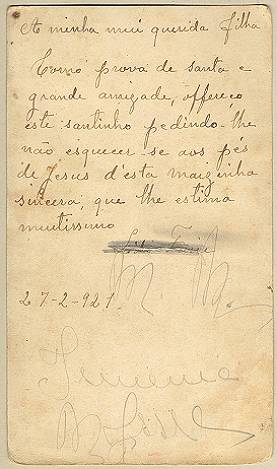 A minha mui querida filha
Como prova de santa e
grande amizade, offereço
este santinho pedindo-lhe
não esquecer-se aos pés
de Jesus d'esta mãizinha
sincera que lhe estima
muitissimo
M. M.
27-2-921